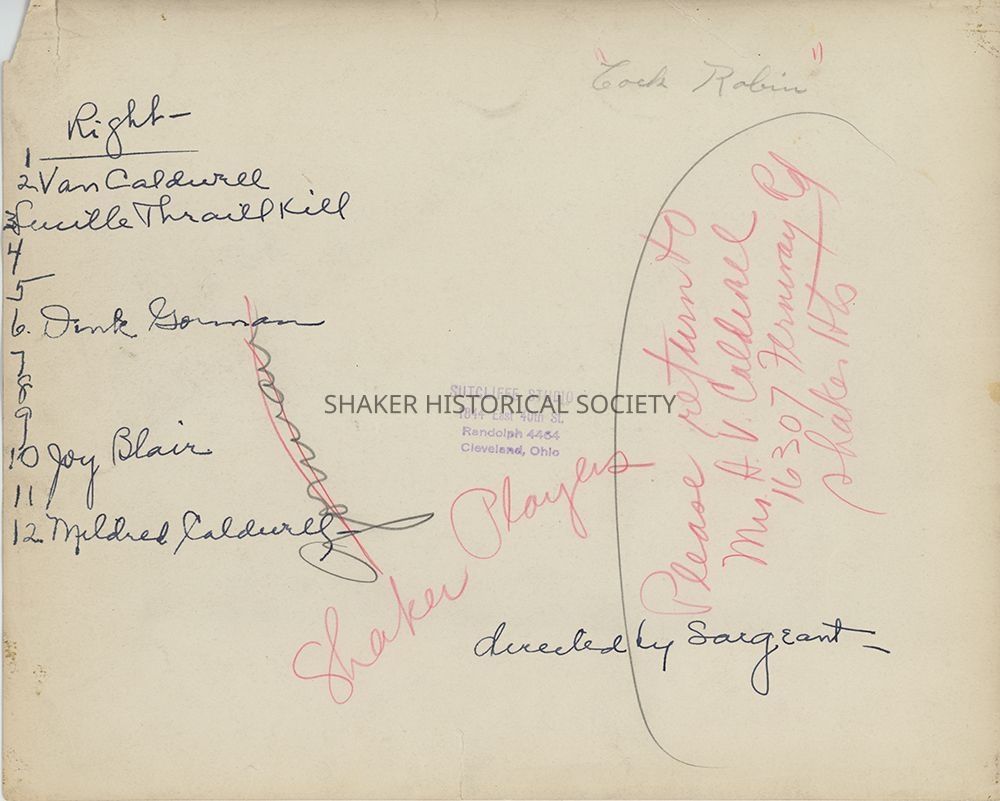 "Cock Robin"
Right-
1
2. Van Caldwell
3 Lucille Thraill Kill
4
5
6. Dink Gorman
7
8
9
10 Joy Blair
11
12. Mildred Caldwell
SUTCLIFFE STUDIO
1844 East 40th St.
Randolph 4464
Cleveland, Ohio
SHAKER HISTORICAL SOCIETY
Shaker Players
Please return to
Mrs A. V. Caldwell
16307 Fernway Rd
Shaker Hts
directed by Sargeant -